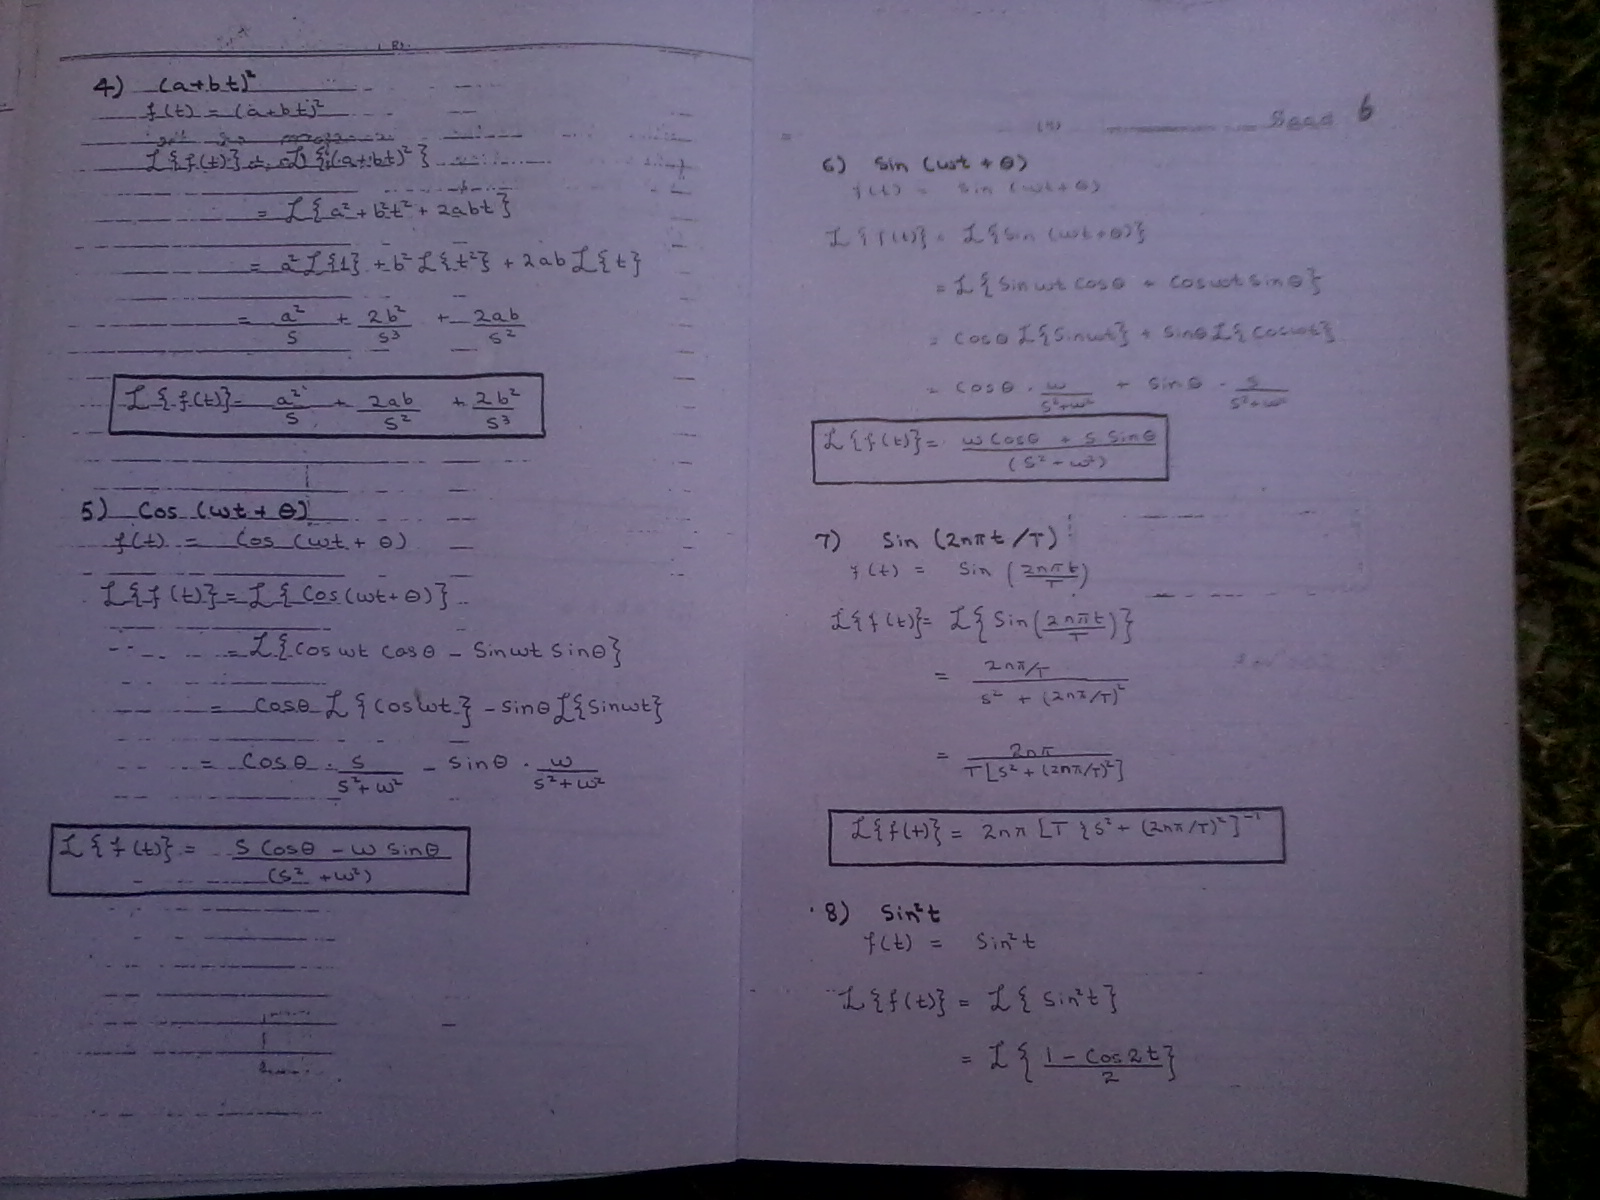 4) (a+bt)²
f(t) = (a+bt)²
ℒ{f(t)} = ℒ{(a+bt)²}
= ℒ{a² + b²t² + 2abt}
= a²ℒ{1} + b²ℒ{t²} + 2abℒ{t}
= a²/s + 2b²/s³ + 2ab/s²
ℒ{f(t)} = a²/s + 2ab/s² + 2b²/s³
5) Cos (ωt + θ)
f(t) = Cos (ωt + θ)
ℒ{f(t)} = ℒ{Cos(ωt + θ)}
= ℒ{Cos ωt Cosθ - Sinωt Sinθ}
= Cosθ ℒ{Cosωt} - Sinθ ℒ{Sinωt}
= Cosθ · s/s²+ω² - Sinθ · ω/s²+ω²
ℒ{f(t)} = S Cosθ - ω Sinθ/(s² + ω²)
6
6) Sin (ωt + θ)
f(t) = Sin (ωt + θ)
ℒ{f(t)} = ℒ{Sin (ωt + θ)}
= ℒ{Sinωt Cosθ + Cosωt Sinθ}
= Cosθ ℒ{Sinωt} + Sinθ ℒ{Cosωt}
= Cosθ · ω/s²+ω² + Sinθ · s/s²+ω²
ℒ{f(t)} = ω Cosθ + S Sinθ/(s² - ω²)
7) Sin (2nπt/T)
f(t) = Sin (2nπt/T)
ℒ{f(t)} = ℒ{Sin(2nπt/T)}
= 2nπ/T/s² + (2nπ/T)²
= 2nπ/T[s² + (2nπ/T)²]
ℒ{f(t)} = 2nπ [T {s² + (2nπ/T)²]⁻¹
8) Sin²t
f(t) = Sin²t
ℒ{f(t)} = ℒ{Sin²t}
= ℒ{1 - Cos2t/2}